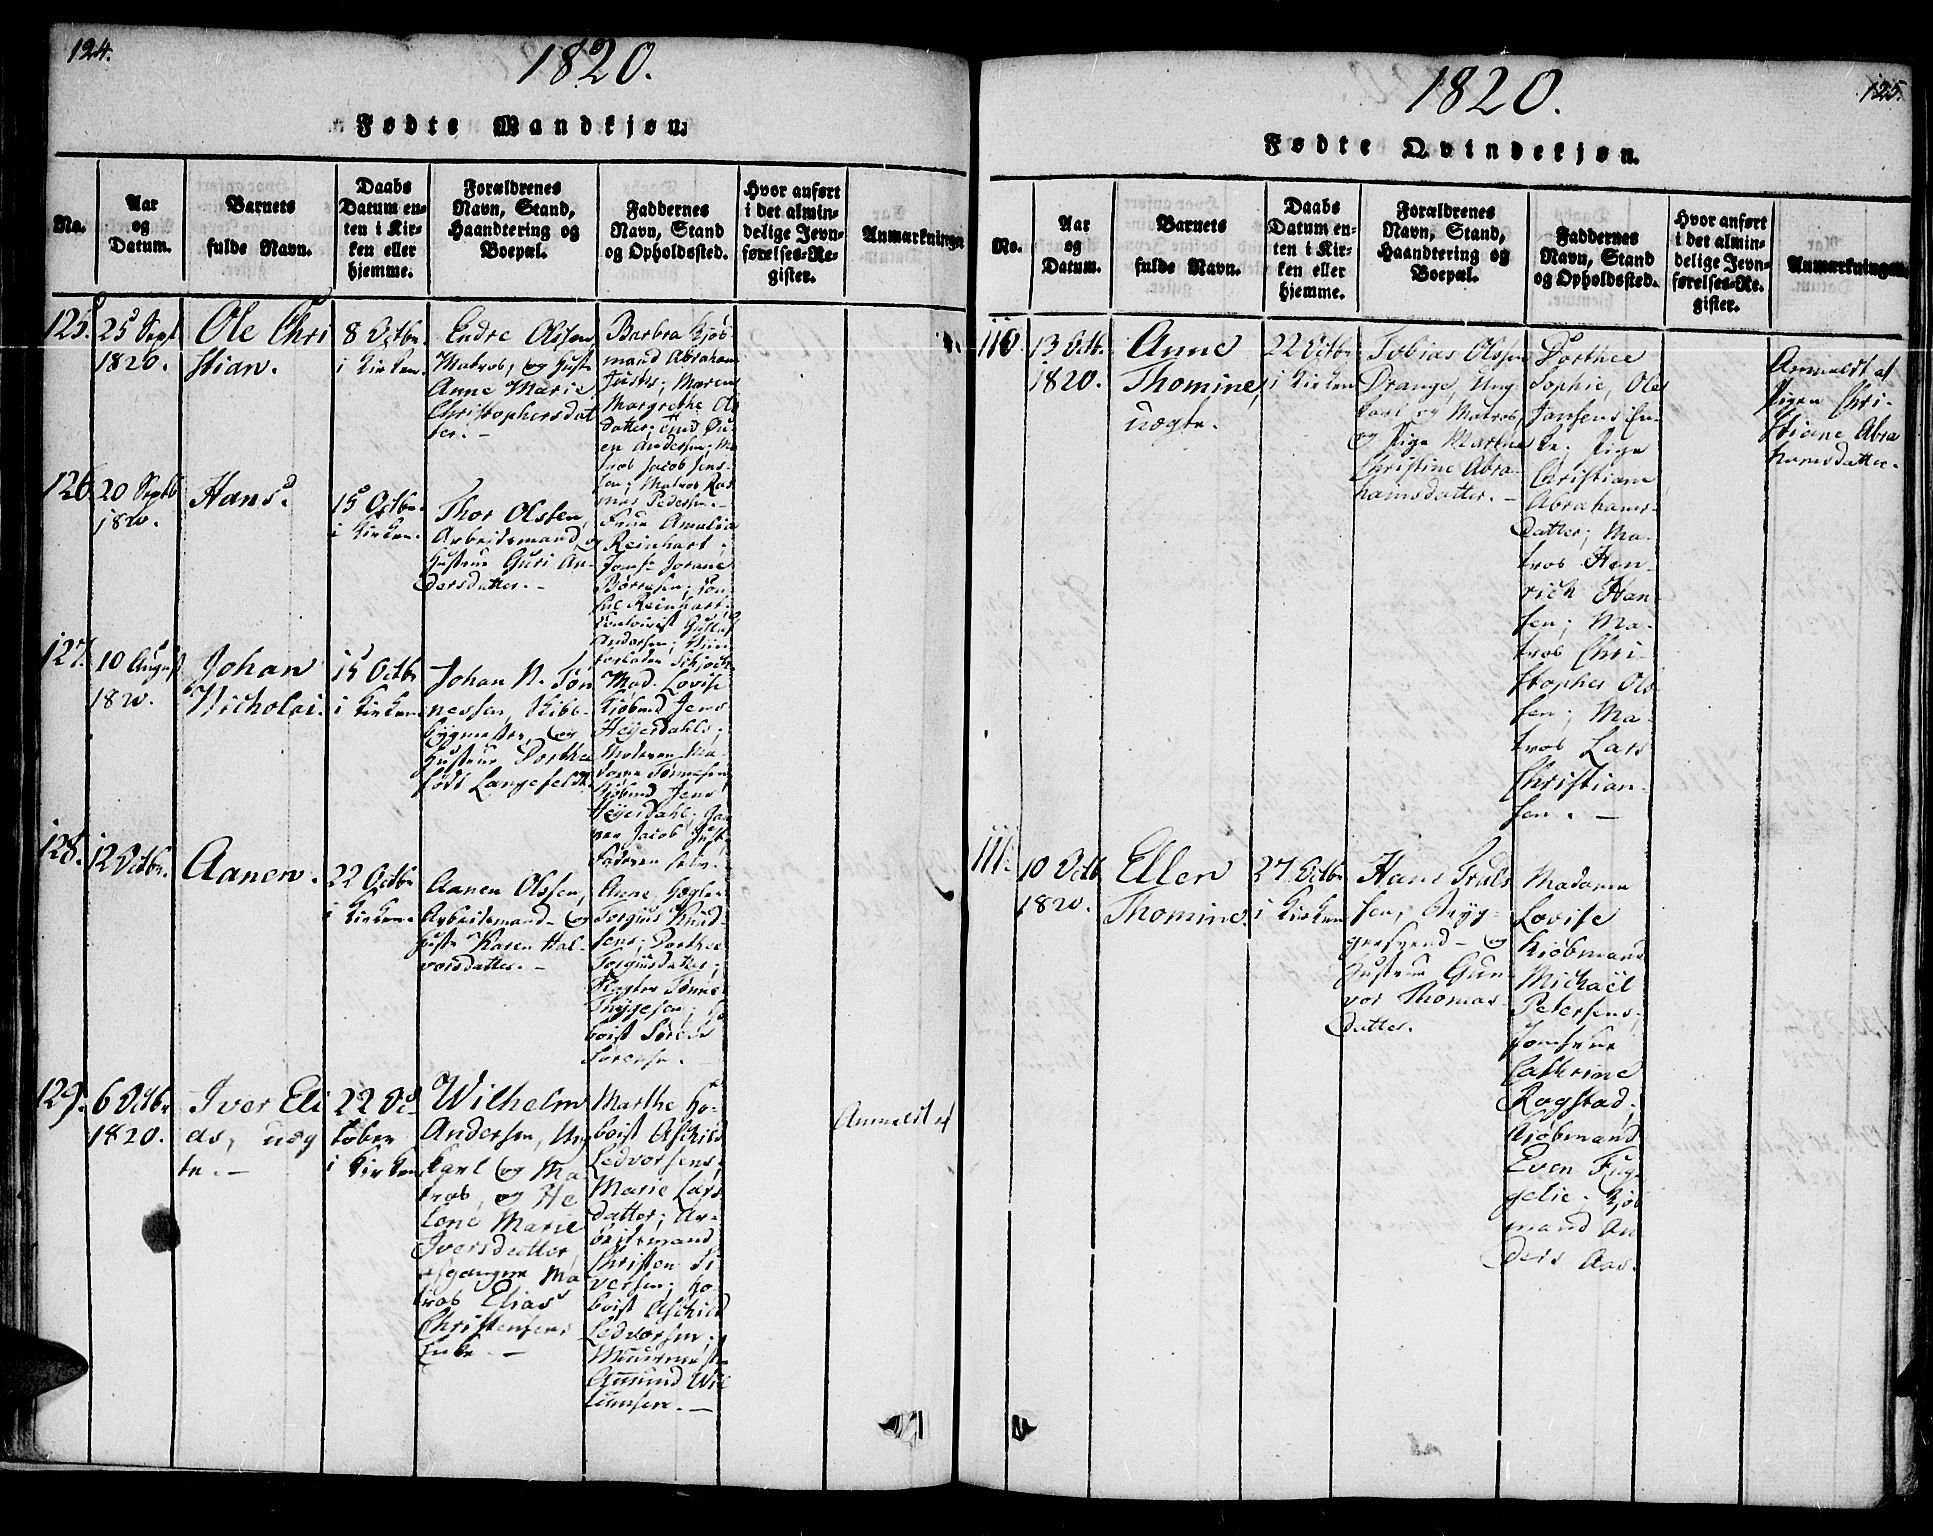 124.
1820.
Fødte Mandkjøn.
No.
Aar
og
Datum.
Barnets
fulde Navn.
Daabs
Datum en-
ten i Kir-
ken eller
hjemme.
Forældrenes
Navn, Stand,
Haandtering og
Boepæl.
Faddernes
Navn, Stand
og Opholdssted.
Hvor anført
i det almin-
delige Jevn-
førelses-Re-
gister.
Anmærkninger
125.
25 Sept
1820.
Ole Chri
stian.
8 Octbr.
i Kirken.
Endre Olsen,
Matros, og Hustr
Anne Marie
Christophersdat
ter. -
Barbra Kjøb
mand Abraham
Maren
Margrethe Ols
datter;
Andersen; Ma
tros Jacob Jens-
sen; Matros Ras
mus Pedersen. -
126.
20 Septb
1820.
Hans.
15 Octbr.
i Kirken.
Thor Olssen,
Arbeidsmand, og
Hustrue Guri An-
dersdatter. -
Frue Amalia
Reinhart;
Jomfr Jorane
Børresen; Con-
sul Reinhart;
Andersen;
127.
10 August
1820.
Johan
Nicholai.
15 Octbr
i Kirken.
Johan N. Tøn
nessen, Skibb-
bygmester, og
Hustrue Dorthea
født Langefeldt.
Mad. Lovise
Kjøbmd Jens
Heyerdahls;
Moderen Ma-
dame Tønnesen;
Kjøbmd Jens
Heyerdahl;
Jacob
Faderen selv.
128.
12 Octbr.
Aanen.
22 Octbr
i Kirken.
Aanen Olssen,
Arbeidsmand - og
Hustr Karen Hal-
vorsdatter. -
Anne
Torgius Knud
sens; Dorthea
Torgiusdatter;
Tønnes
Thygesen; Ho
boist Søren
Sørensen.
129.
6 Octbr
1820.
Iver Eli
as, uæg
te. -
22 Oc
tober
i Kirken
Wilhelm
Andersen, Ung
karl og Ma
tros, og He
lene Marie
Iversdatter,
afgangne Ma
tros Elias
Christensens
Enke. -
Marthe Ho-
boist Aschild
Ledvorsens;
Marie Lars
datter; Ar-
beidsmand
Christen Si
versen; Ho
boist Aschild
Ledvorsen;
Muurmester
Amund Wil
lumsen. -
Anmeldt af
125.
1820.
Fødte Qvindekjøn.
No.
Aar
og
Datum.
Barnets
fulde Navn.
Daabs
Datum en-
ten i Kir-
ken eller
hjemme.
Forældrenes
Navn, Stand,
Haandtering og
Boepæl.
Faddernes
Navn, Stand
og Opholdssted.
Hvor anført
i det almin-
delige Jevn-
førelses-Re-
gister.
Anmærkninger.
110.
13 Octb.
1820.
Anne
Thomine,
uægte.
22 Octbr
i Kirken
Tobias Olssen
Drange, Ung
karl og Matros,
og Pige Marthe
Christine Abra-
hamsdatter. -
Dorthee
Sophie, Ole
Jansens En-
ke; Pige
Christiane
Abrahams-
datter; Ma-
tros Hen-
rich Han-
sen; Ma-
tros Chri-
stopher Ols-
sen; Ma-
tros Lars
Christian-
sen. -
Anmeldt af
Pigen Chri-
stiane Abra
hamsdatter.
111.
10 Octb
1820.
Ellen
Thomine.
27 Octbr
i Kirken
Hans Truls
sen, Bryg-
gersvend - og
Hustrue Gun
vor Thomas-
datter.
Madame
Lovise
Kiøbmand
Michael
Petersens;
Jomfrue
Cathrine
Rogstad;
Kjøbmand
Even Fug-
gelie; Kjøb
mand An
ders Aas.